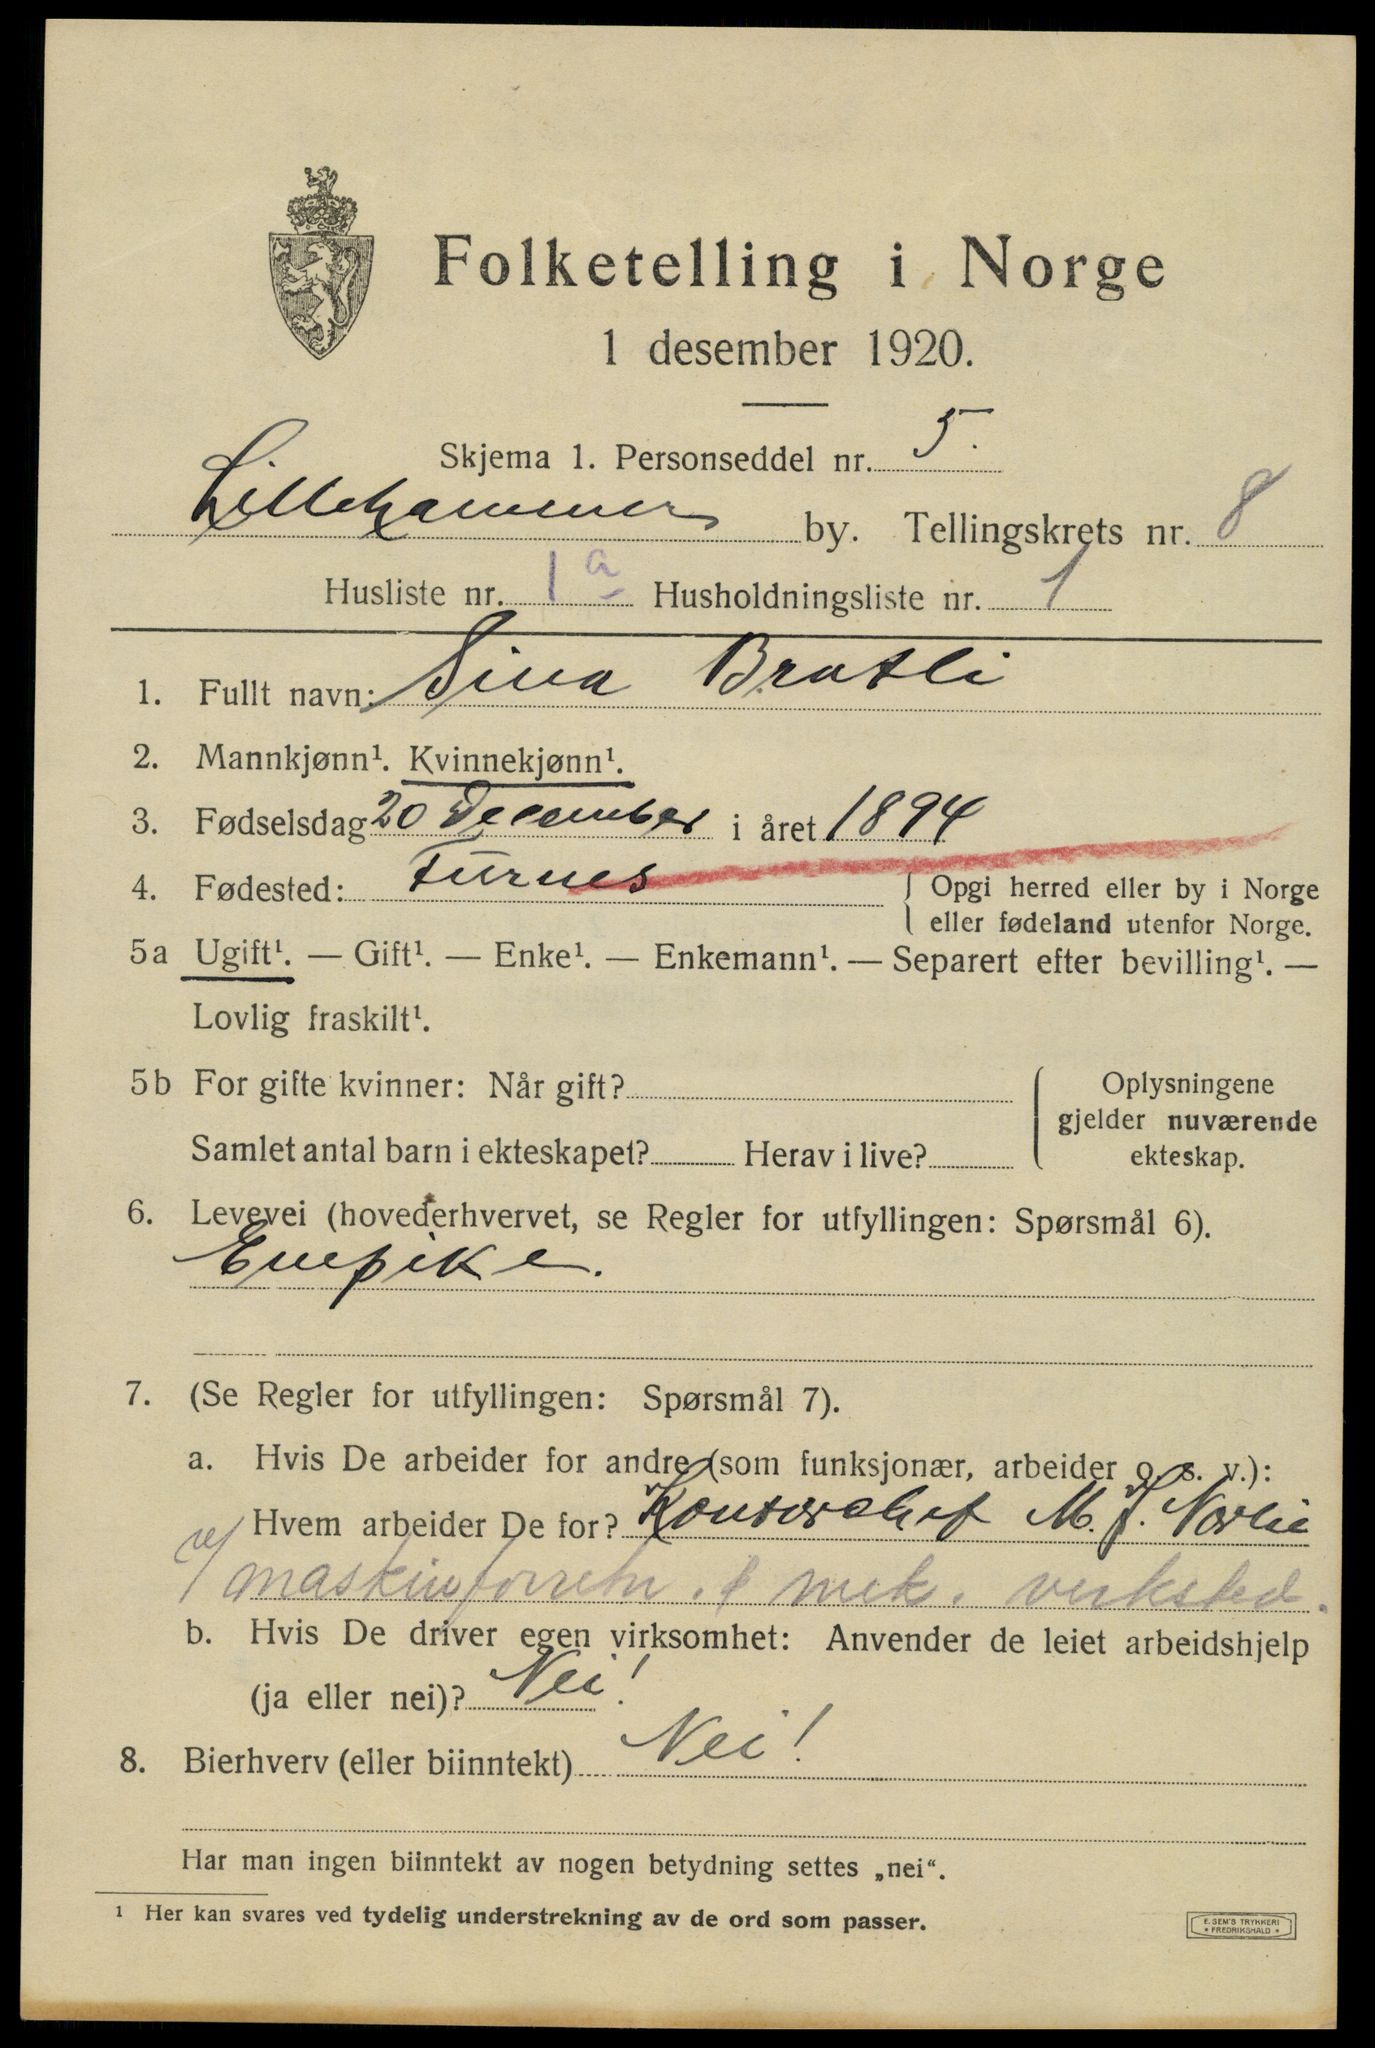 Folketelling i Norge
1 desember 1920.
Skjema 1. Personseddel nr. 5.
Lillehammer by. Tellingskrets nr. 8
Husliste nr. 1a Husholdningsliste nr. 1
1. Fullt navn: Sina Bratli
2. Mannkjønn¹. Kvinnekjønn¹.
3. Fødselsdag 20 December i året 1894
4. Fødested: Furnes { Opgi herred eller by i Norge
eller fødeland utenfor Norge.
5a Ugift¹. — Gift¹. — Enke¹. — Enkemann¹. — Separert efter bevilling¹. —
Lovlig fraskilt¹.
5b For gifte kvinner: Når gift? { Oplysningene
gjelder nuværende
Samlet antal barn i ekteskapet? Herav i live? ekteskap.
6. Levevei (hovederhvervet, se Regler for utfyllingen: Spørsmål 6).
Enepike.
7. (Se Regler for utfyllingen: Spørsmål 7).
a. Hvis De arbeider for andre (som funksjonær, arbeider o. s. v.):
Hvem arbeider De for? Kontorchef M. J. Norlie
v/ maskinforretn. & mek. verksted.
b. Hvis De driver egen virksomhet: Anvender de leiet arbeidshjelp
(ja eller nei)? Nei!
8. Bierhverv (eller biinntekt) Nei!
Har man ingen biinntekt av nogen betydning settes „nei“.
¹ Her kan svares ved tydelig understrekning av de ord som passer.
E. SEM'S TRYKKERI
* FREDRIKSHALD *